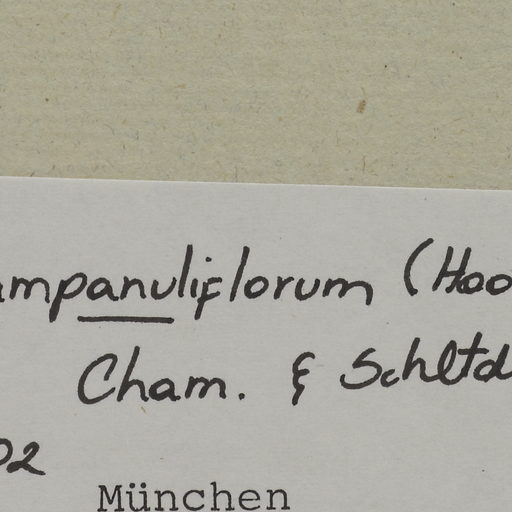 ampanuliflorum (Hoo
Cham. & Schltd
02
München